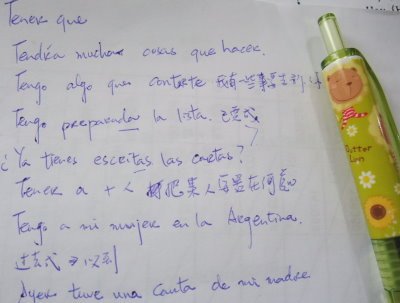 Tener que
Tendría muchas cosas que hacer.
Tengo algo que contarte 我有一些事要告訴你
Tengo preparada la lista. 已完成
¿Ya tienes escritas las cartas?
Tener a + 人 把某人安置在何處
Tengo a mi mujer en la Argentina.
過去式 → 收到
Ayer tuve una carta de mi madre
Butter
Lion